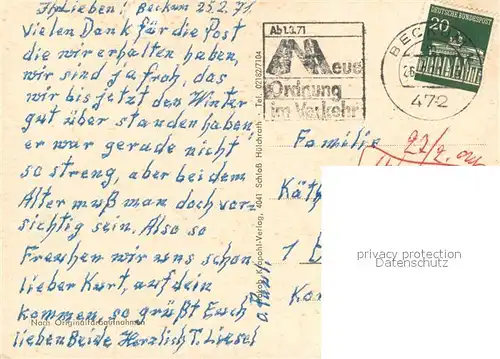 Ihr Lieben! Beckum 25.2.71
Vielen Dank für die Post
die wir erhalten haben,
wir sind ja froh, das
wir bis jetzt den Winter
gut über standen haben,
er war gerade nicht
so streng, aber bei dem
Alter muß man doch vor-
sichtig sein. Also so
Freuhen wir uns schon
lieber Kurt, auf dein
kommen, so grüßt Euch
lieben Beide Herzlich T. Liesel
Nach Originalfarbaufnahmen
Krapohl-Verlag, 4041 Schloß Hülchrath - Tel. 02182/7104
Ab 1.3.71
Neue
Ordnung
im Verkehr
BEC
472
DEUTSCHE BUNDESPOST
20
Familie
Käth
1
privacy protection
Datenschutz